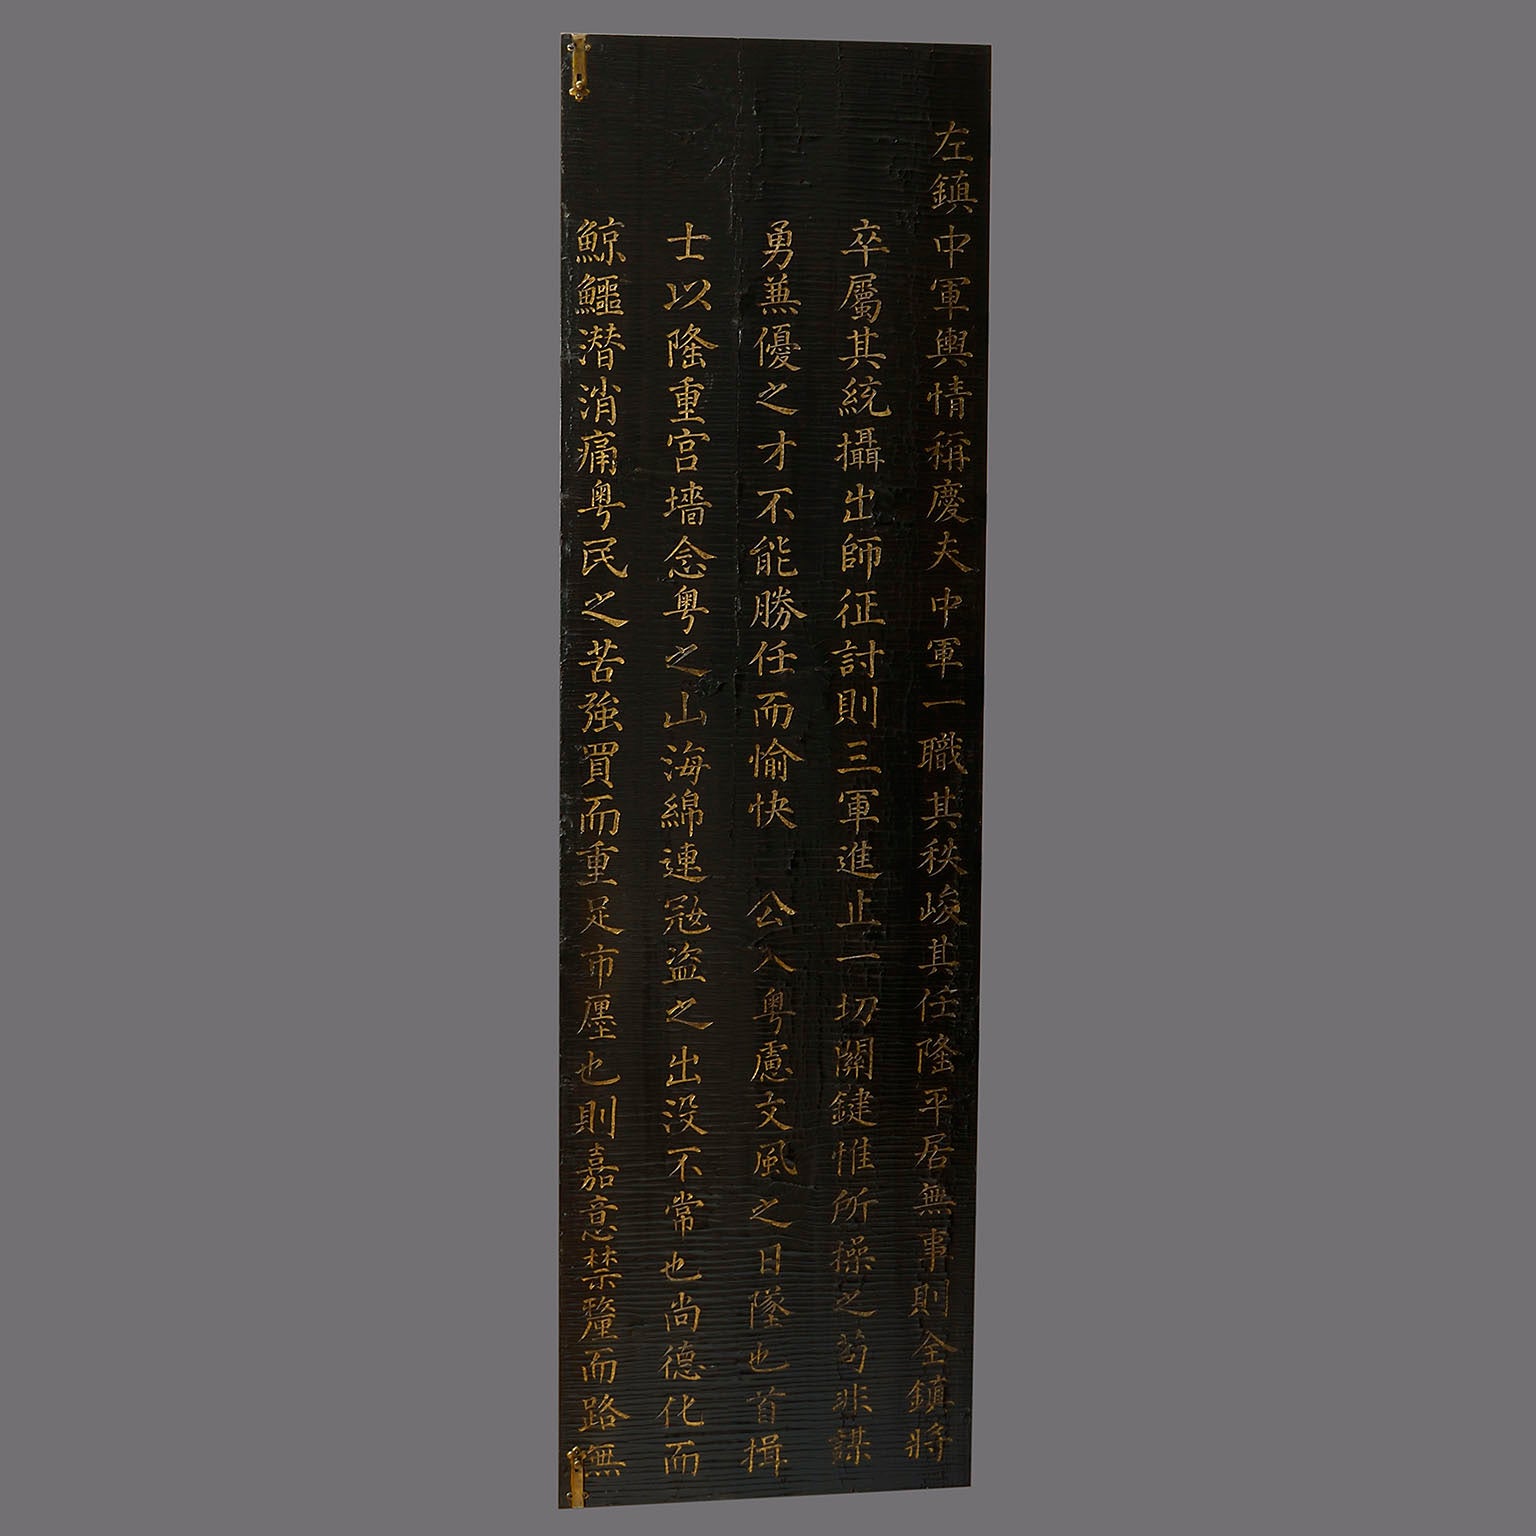 左鎮中軍輿情稱慶夫中軍一職其秩峻其任隆平居無事則全鎮將
卒屬其統攝出師征討則三軍進止一切關鍵惟所操之苟非謀
勇兼優之才不能勝任而愉快 公入粵慮文風之日墜也首揖
士以隆重宮墻念粵之山海綿連冦盜之出没不常也尚德化而
鯨鱷潛消痛粵民之苦強買而重足市廛也則嘉意禁釐而路無